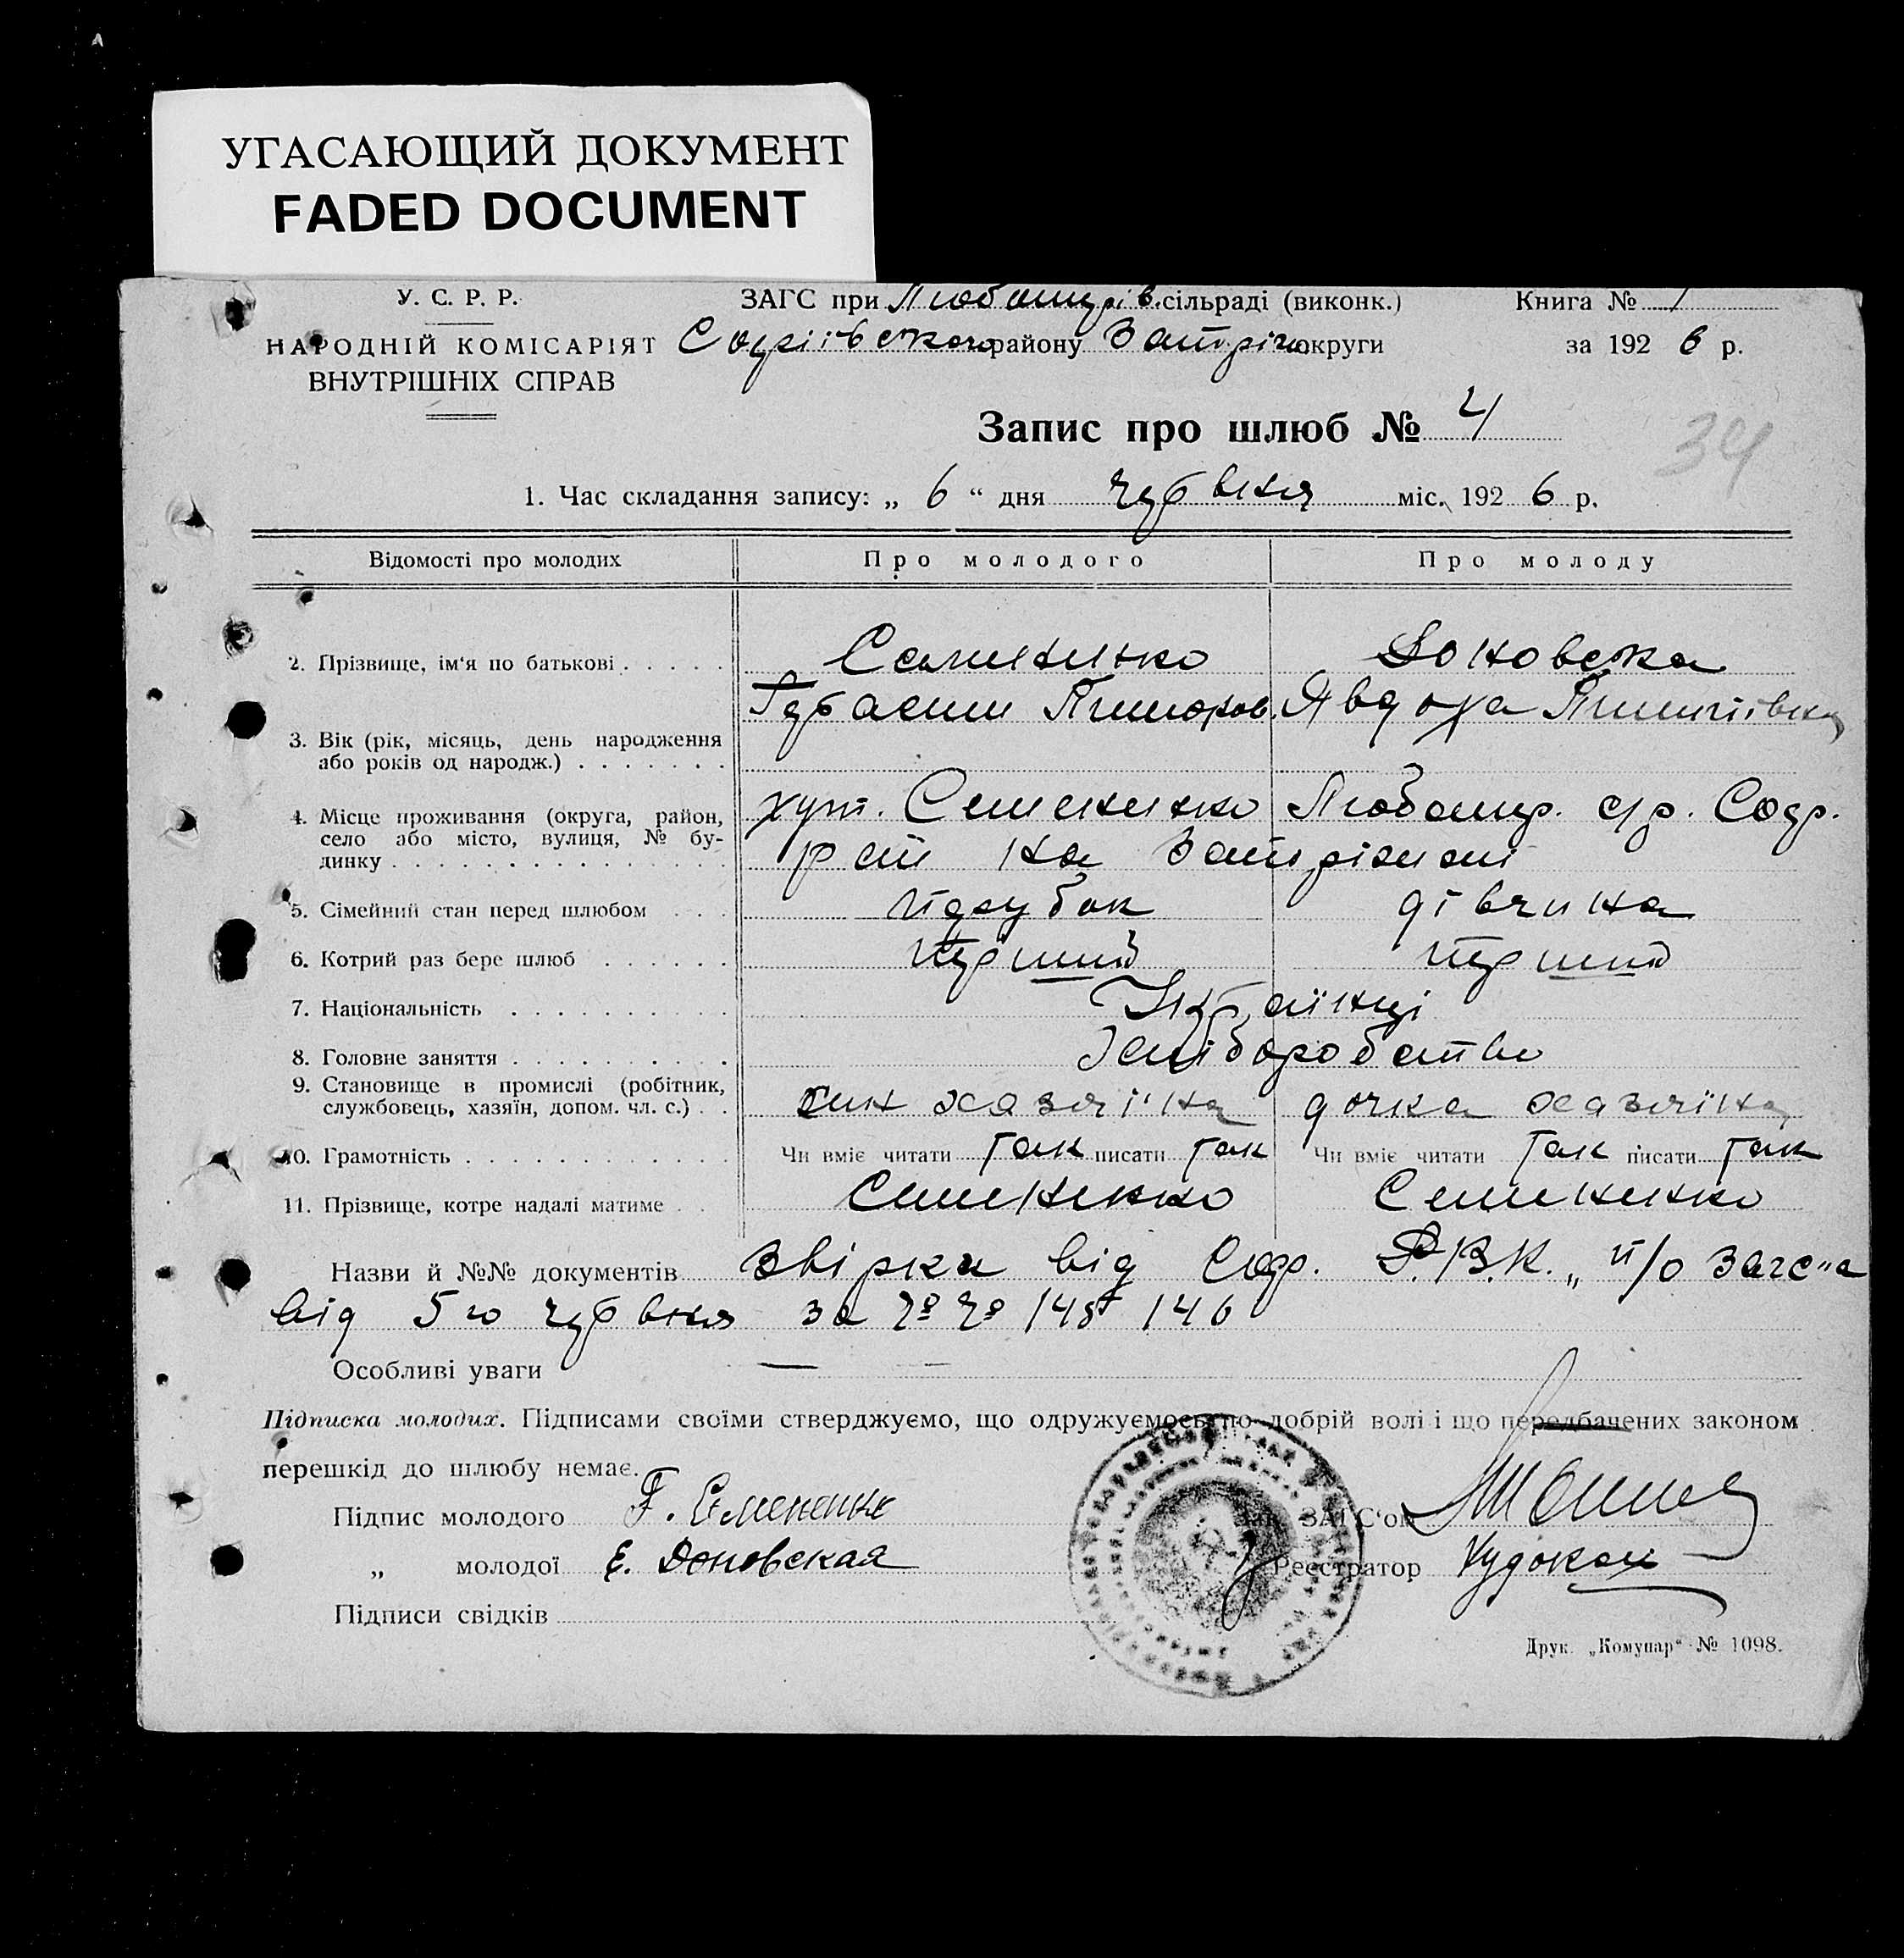 УГАСАЮЩИЙ ДОКУМЕНТ
FADED DOCUMENT
У. С. Р. Р.
НАРОДНІЙ КОМІСАРІЯТ
ВНУТРІШНІХ СПРАВ
ЗАГС при Любимрів. сільраді (виконк.)
Софіївського району Запоріж. округи
Книга № 1
за 1926 р.
Запис про шлюб № 4
34
1. Час складання запису: „ 6 “ дня червня міс. 1926 р.
Відомості про молодих Про молодого Про молоду
2. Прізвище, ім‘я по батькові Семененко Доновська
Явдоха
3. Вік (рік, місяць, день народження
або років од народж.)
4. Місце проживання (округа, район, хут. Семененко Любомир. с/р. Соф.
село або місто, вулиця, № бу-
динку рай на Запоріжжі
5. Сімейний стан перед шлюбом парубок дівчина
6. Котрий раз бере шлюб перший перший
7. Національність Українці
8. Головне заняття Хліборобство
9. Становище в промислі (робітник,
службовець, хазяїн, допом. чл. с.) син хазяїна дочка хазяїна
10. Грамотність Чи вміє читати так писати так Чи вміє читати так писати так
11. Прізвище, котре надалі матиме Семененко Семененко
Назви й №№ документів Звірки від Соф. Р.В.К. „п/о Загс“а
від 5го червня за №№ 145 146
Особливі уваги —
Підписка молодих. Підписами своїми стверджуємо, що одружуємось по добрій волі і що передбачених законом
перешкід до шлюбу немає.
Підпис молодого Г. Семененко
„ молодої Е. Доновская
Підписи свідків
Зав. ЗАГС‘ом
Реєстратор
Друк. „Комунар“ № 1098.